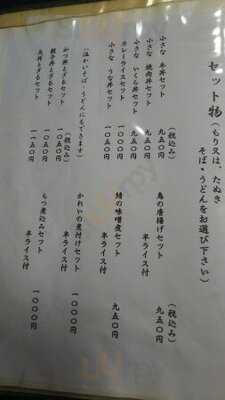 セット物（もり又は、たぬき
そば・うどんをお選び下さい）
（税込み）
小さな 牛丼セット 九五〇円
小さな 焼肉丼セット 九五〇円
小さな いくら丼セット 九五〇円
カレーライスセット 一〇〇〇円
小さな うな丼セット 一〇五〇円
（温かいそば・うどんにもできます）
（税込み）
かつ丼とざるセット 一〇五〇円
親子丼とざるセット 一〇五〇円
天丼とざるセット 一一五〇円
（税込み）
鳥の唐揚げセット
半ライス付 九五〇円
鯖の味噌煮セット
半ライス付 九五〇円
かれいの煮付けセット
半ライス付 一〇〇〇円
もつ煮込みセット
半ライス付 一〇〇〇円